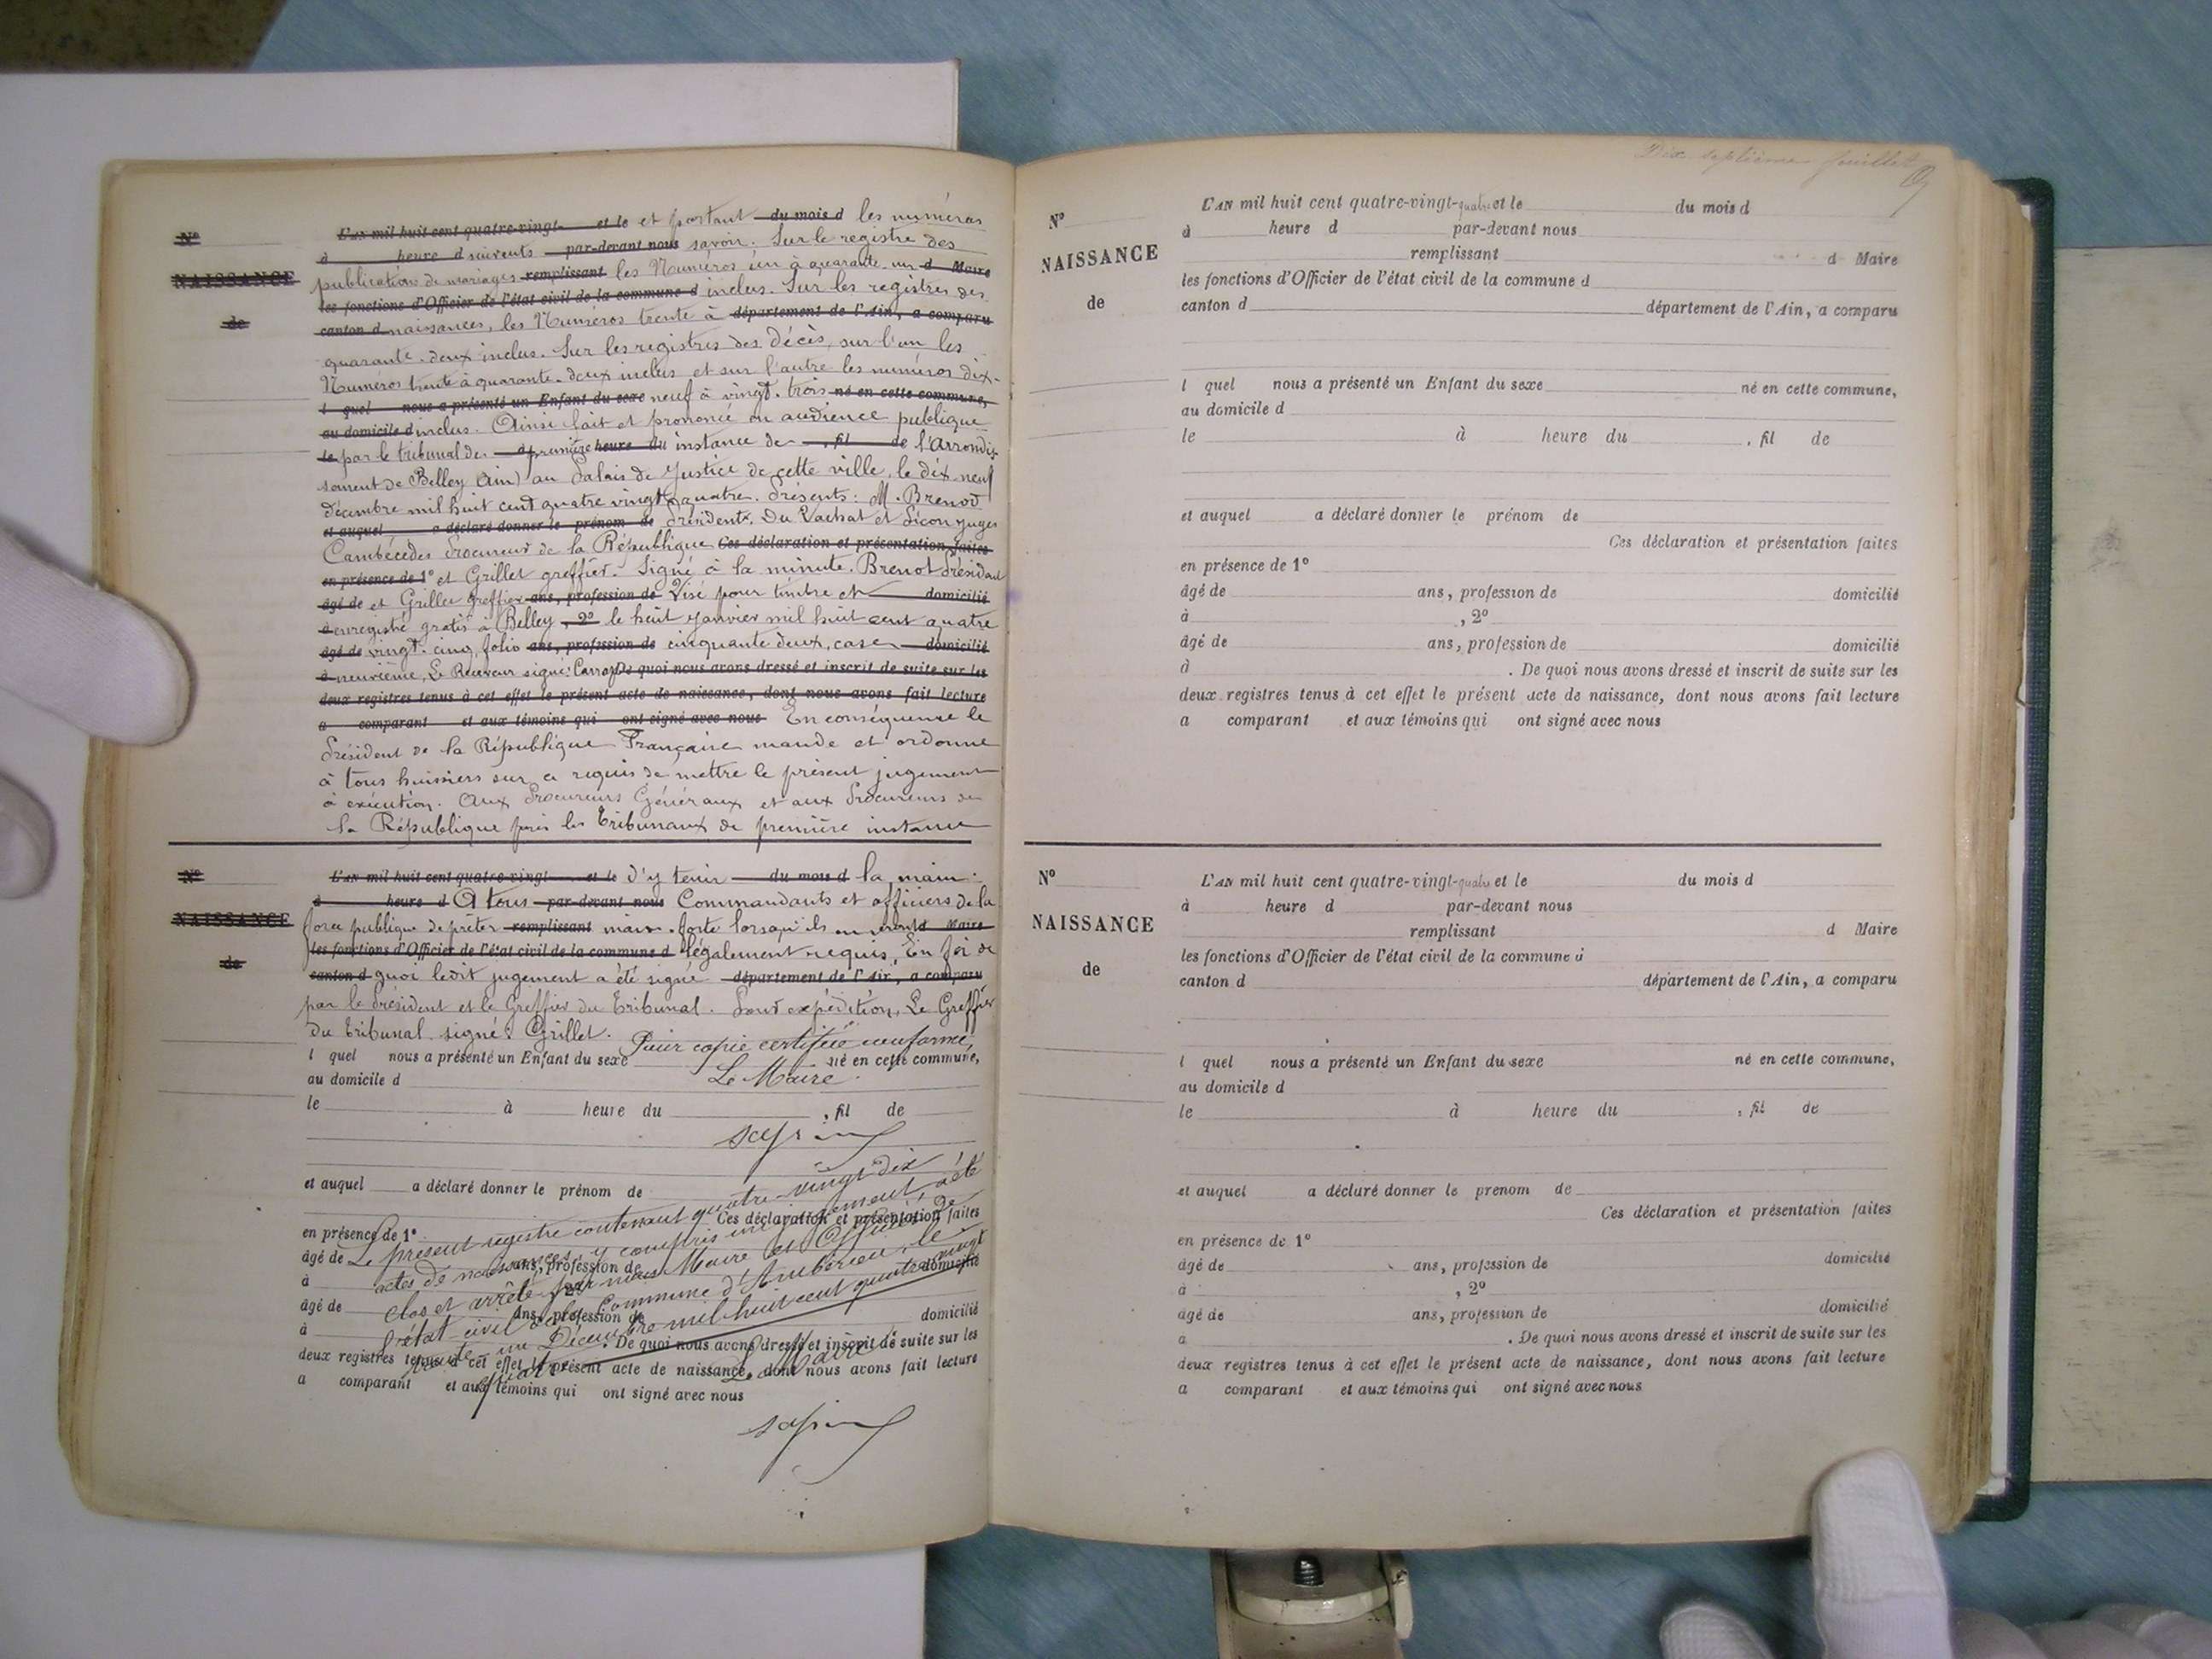 N°
NAISSANCE
de
L'AN mil huit cent quatre-vingt- et le et portant du mois d les numéros
à heure d suivents par-devant nous savoir. Sur le registre des
publications de mariages remplissant les Numéros un à quarante un d Maire
les fonctions d'Officier de l'état civil de la commune d inclus. Sur les registres des
canton d naissances, les Numéros trente à département de l'Ain, a comparu
quarante-deux inclus. Sur les registres des décès, sur l'un les
Numéros trente à quarante-deux inclus et sur l'autre les numéros dix-
l quel nous a présenté un Enfant du sexe neuf à vingt-trois né en cette commune,
au domicile d inclus. Ainsi fait et prononcé en audience publique
le par le tribunal de à première heure du instance de , fil de l'Arrondis-
sement de Belley (Ain) au Palais de Justice de cette ville, le dix-neuf
décembre mil huit cent quatre vingt quatre. Présents: M. Brenod
et auquel a déclaré donner le prénom de Président. Du Vachat et Sicon juges
Cambécédes Procureur de la République Ces déclaration et présentation faites
en présence de 1° et Grillet greffier. Signé à la minute. Brenot Président
âgé de et Grillet Greffier ans, profession de Visé pour timbre et domicilié
à enregistré gratis à Belley , 2° le huit Janvier mil huit cent quatre
âgé de vingt-cinq, folio ans, profession de cinquante deux, case domicilié
à neuvième, Le Receveur signé: De quoi nous avons dressé et inscrit de suite sur les
deux registres tenus à cet effet le présent acte de naissance, dont nous avons fait lecture
a comparant et aux témoins qui ont signé avec nous En conséquence le
Président de la République Française mande et ordonne
à tous huissiers sur ce requis de mettre le présent jugement
à exécution. Aux Procureurs Généraux et aux Procureurs de
la République près les Tribunaux de première instance
N°
NAISSANCE
de
L'AN mil huit cent quatre-vingt- et le d'y tenir du mois d la main:
à heure d A tous par-devant nous Commandants et officiers de la
force publique de prêter remplissant main-forte lorsqu'ils en seront d Maire
les fonctions d'Officier de l'état civil de la commune d légalement requis, En foi de
canton d quoi ledit jugement a été signé département de l'Ain, a comparu
par le Président et le Greffier du Tribunal. Pour expédition, Le Greffier
du Tribunal signé: Grillet.
Pour copie certifiée conforme,
l quel nous a présenté un Enfant du sexe né en cette commune,
au domicile d Le Maire.
le à heure du , fil de
et auquel a déclaré donner le prénom de
Ces déclaration et présentation faites
en présence de 1°
âgé de ans, profession de domicilié
à , 2°
âgé de ans, profession de domicilié
à . De quoi nous avons dressé et inscrit de suite sur les
deux registres tenus à cet effet le présent acte de naissance, dont nous avons fait lecture
a comparant et aux témoins qui ont signé avec nous
Le présent registre contenant quatre-vingt dix
actes de naissances, y compris un jugement, a été
clos et arrêté par nous Maire et Officier de
l'état-civil de la Commune d'Ambérieu, le
trente-un Décembre mil huit cent quatre vingt
quatre.
Le Maire
Dix septième feuillet
N°
NAISSANCE
de
L'AN mil huit cent quatre-vingt-quatre et le du mois d
à heure d par-devant nous
remplissant d Maire
les fonctions d'Officier de l'état civil de la commune d
canton d département de l'Ain, a comparu
l quel nous a présenté un Enfant du sexe né en cette commune,
au domicile d
le à heure du , fil de
et auquel a déclaré donner le prénom de
Ces déclaration et présentation faites
en présence de 1°
âgé de ans, profession de domicilié
à , 2°
âgé de ans, profession de domicilié
à . De quoi nous avons dressé et inscrit de suite sur les
deux registres tenus à cet effet le présent acte de naissance, dont nous avons fait lecture
a comparant et aux témoins qui ont signé avec nous
N°
NAISSANCE
de
L'AN mil huit cent quatre-vingt-quatre et le du mois d
à heure d par-devant nous
remplissant d Maire
les fonctions d'Officier de l'état civil de la commune d
canton d département de l'Ain, a comparu
l quel nous a présenté un Enfant du sexe né en cette commune,
au domicile d
le à heure du , fil de
et auquel a déclaré donner le prenom de
Ces déclaration et présentation faites
en présence de 1°
âgé de ans, profession de domicilié
à , 2°
âgé de ans, profession de domicilié
a . De quoi nous avons dressé et inscrit de suite sur les
deux registres tenus à cet effet le présent acte de naissance, dont nous avons fait lecture
a comparant et aux témoins qui ont signé avec nous